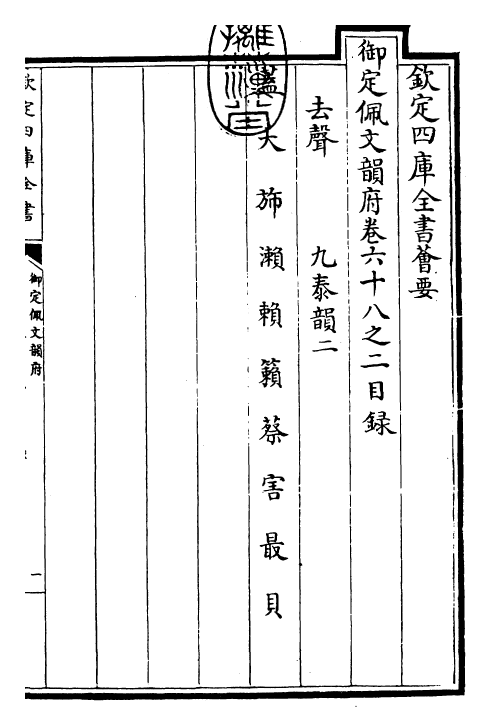 欽定四庫全書薈要
御定佩文韻府卷六十八之二目録
去聲　九泰韻二
大　旆　瀨　賴　籟　蔡　害　最　貝
欽定四庫全書
御定佩文韻府
一